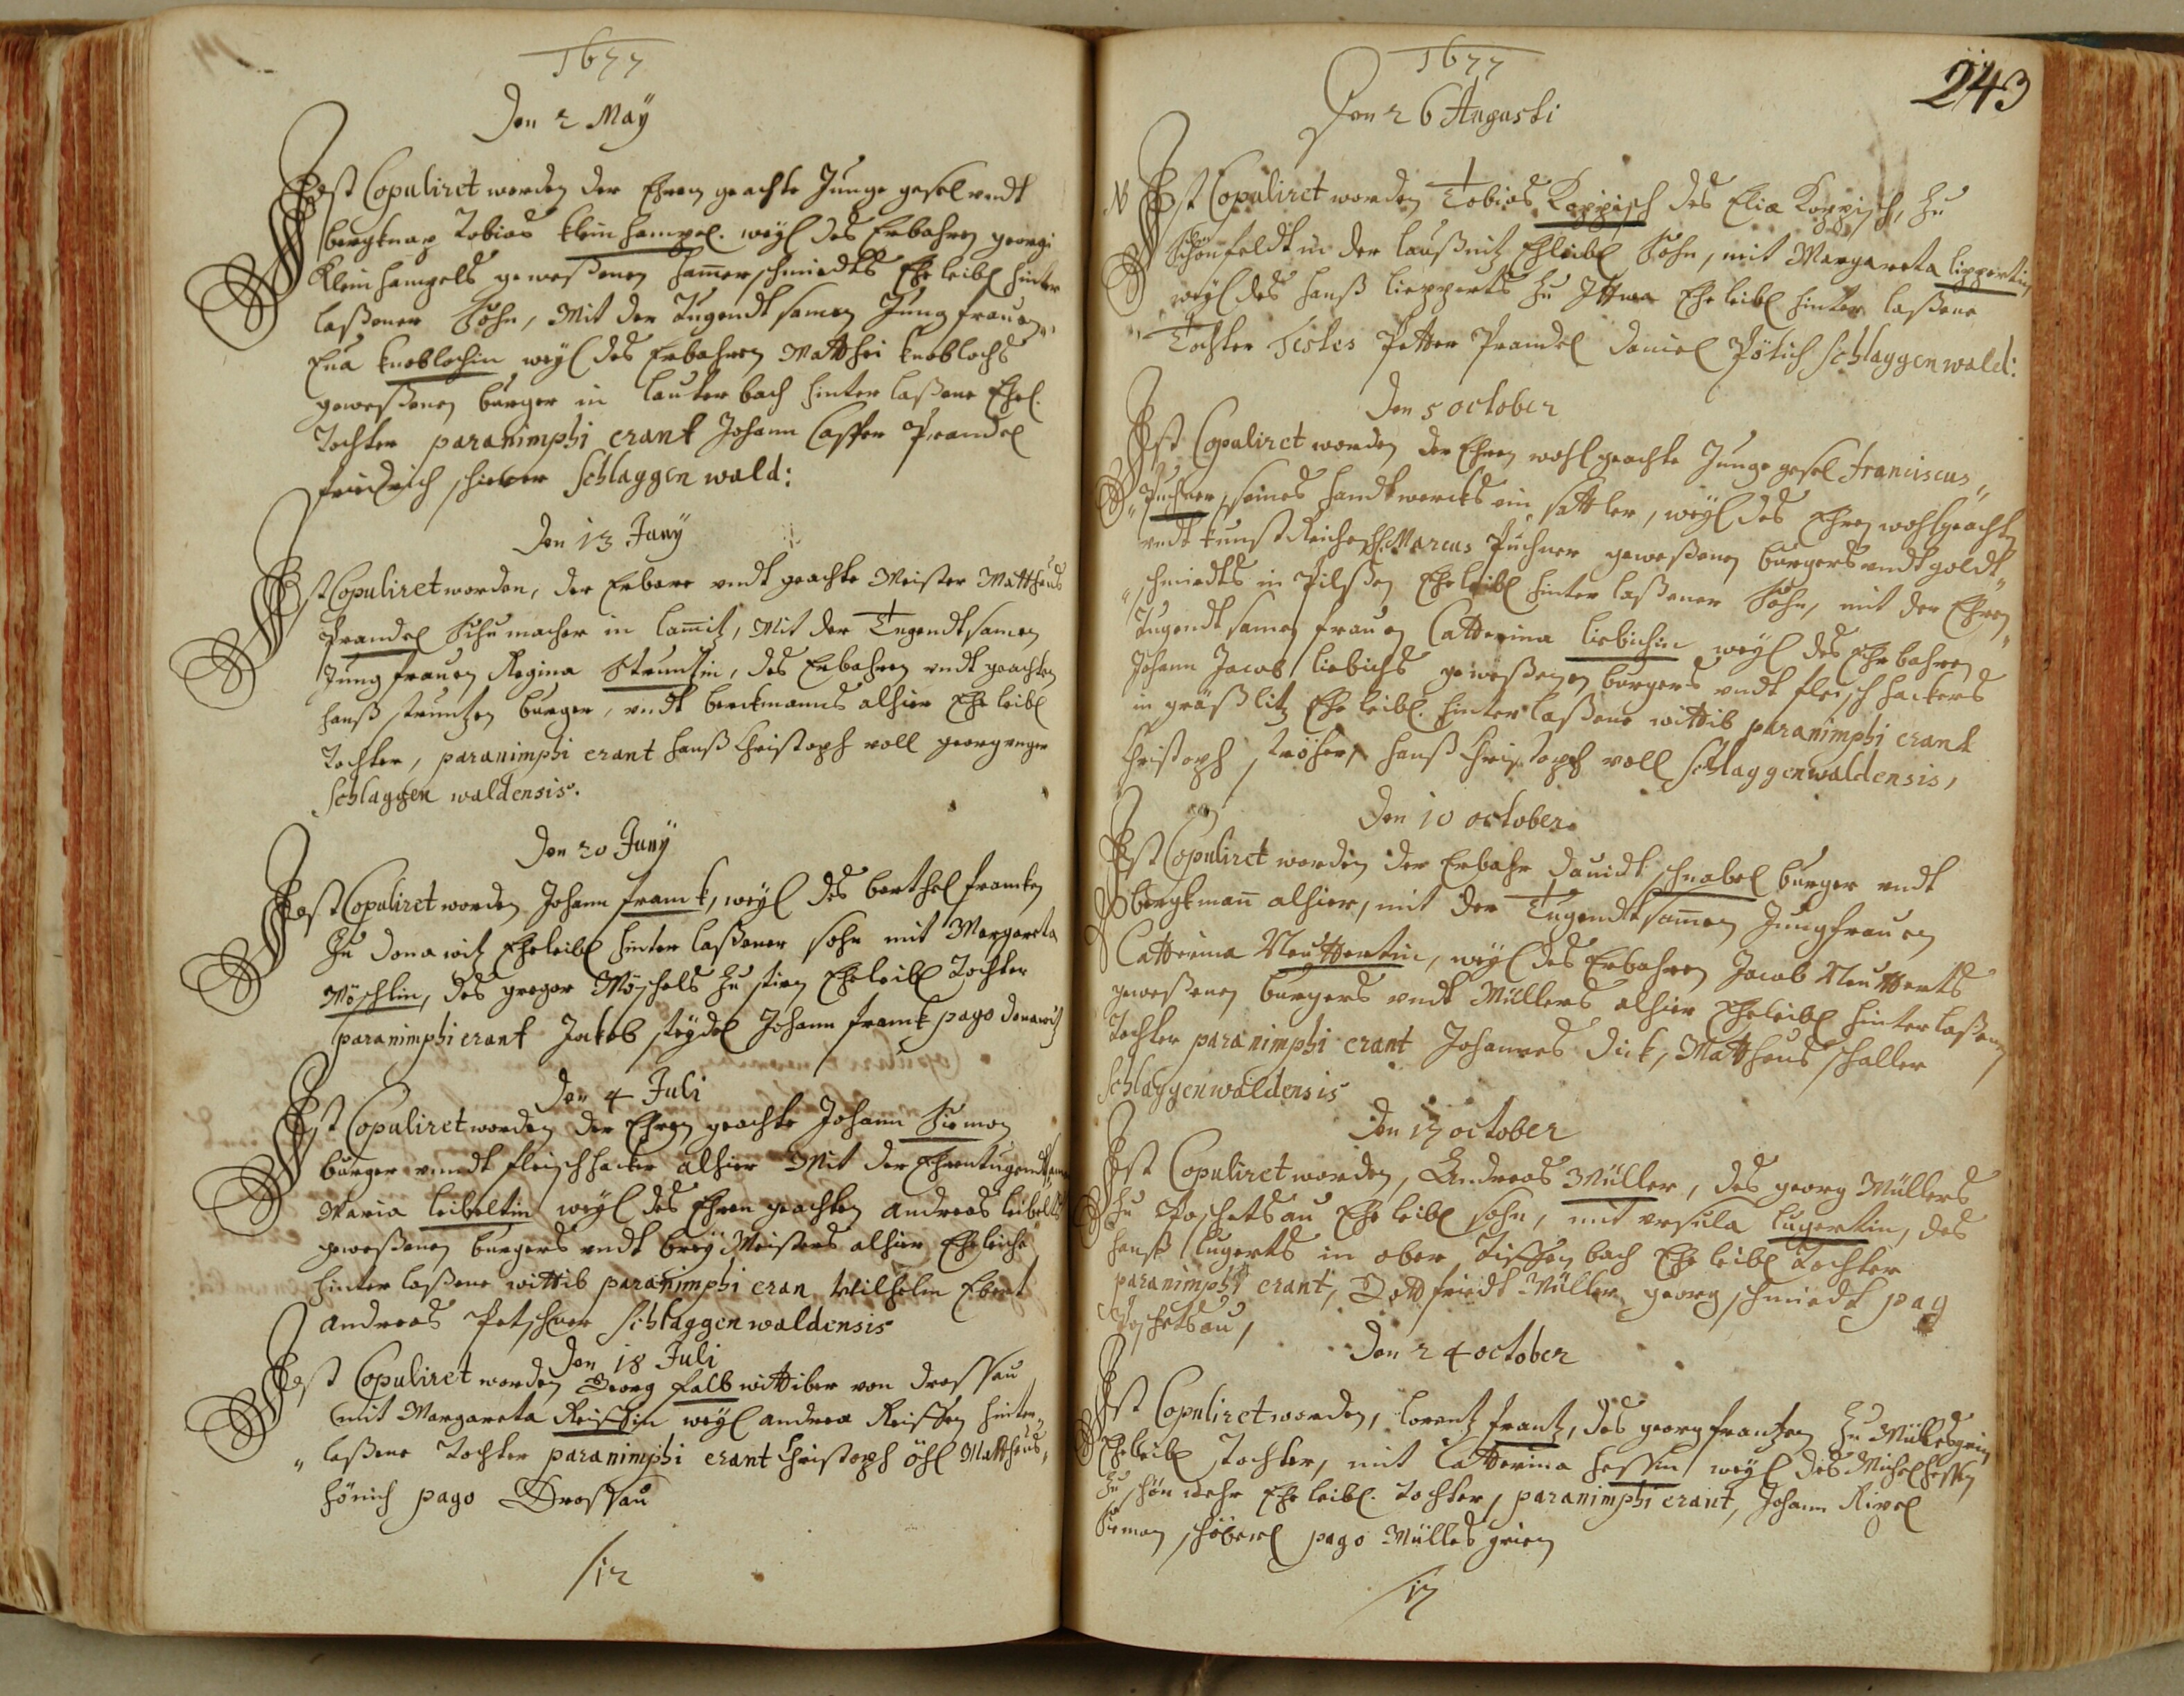 1677
Den 2 May
Ist Copuliret worden der Ehren geachte Junge gesel undt
bergknap Tobias kleinhampel. weyl des Erbahren georgi
Kleinhampels geweßenen Hamerschmiedts Eheleibl hinter
laßener Sohn, Mit der Tugendtsamen Jungfrauen
Eva knoblochin weyl des Erbahren Matthei knoblochs
geweßenen burger in lauterbach hinter laßene Ehel.
Tochter paranimphi erant Johann Casper Prandel
friedrich schieber Schlaggenwald:
Den 13 Juny
Ist Copuliret worden, der Erbare undt geachte Meister Mattheus
Prandel Schumacher in lamitz, Mit der Tugendtsamen
Jungfrauen Regina Struntzin, des Erbahren undt geachten
hanß struntzen burger, undt berckmanns alhier Eheleibl
Tochter, paranimphi erant hanß Christoph voll georg unger
Schlaggen waldensis.
Den 20 Juny
Ist Copuliret worden Johann franck, weyl des berthel francken
Zu donawitz Eheleibl hinter laßener sohn mit Margareta
Möschlin, des gregor Möschels Zu stirn Eheleibl Tochter
paranimphi erant Jakob steydel Johann franck pago donawitz
Den 4 Juli
Ist Copuliret worden der Ehren geachte Johann Siemon
burger unndt fleischhacker alhier Mit der Ehrentugendtsamen
Maria leibeltin weyl des Ehren geachten andreas leibelts
geweßenen burgers undt brey Meisters alhier Eheliche
hinter laßene wittib paranimphi eran Wilhelm Ebert
andreas Petschner Schlaggenwaldensis
Den 18 Juli
Ist Copuliret worden Georg falb wittiber von drossau
mit Margareta Reissin weyl andrea Reissen hinter
laßene Tochter paranimphi erant Christoph öhl Mattheus
hönich pago Drossau
1677
243
Den 26 Augusti
N Ist Copuliret worden Tobias Koppisch des Eliæ Koppisch, Zu
Schönfeldt in der laußnitz Ehleibl Sohn, mit Margareta lippertin
weyl des hanß liepperts Zu Ehe leibl hinter laßene
Tochter Testes Petter Prandel Daniel Pötich Schlaggenwald:
Den 5 october
Ist Copuliret worden der Ehren wohl geachte Junge gesel Franciscus
Puchner, seines handtwercks ein sattler, weyl des Ehren wohlgeachten
undt kunstreichen H: Marcus Puchner geweßenen burgers undt goldt
schmiedts in Pilßen Eheleibl hinter laßener Sohn, mit der Ehren
Tugendtsamen frauen Catterina liebichin weyl des Ehrbahren
Johann Jacob liebichs geweßenen burgers undt fleischhackers
in gräßlitz Ehe leibl. hinter laßene wittib paranimphi erant
Christoph tröscher, hanß Christoph voll Schlaggenwaldensis,
Den 10 october
Ist Copuliret worden der Erbahr Davidt schnabel burger undt
bergkmañ alhier, mit der Tugendtsamen Jungfrauen
Catterina Neuttertin, weyl des Erbahren Jacob Neutterts
geweßenen burgers undt Müllers alhier Eheleibl hinterlaßene
Tochter paranimphi erant Johannes dick, Mattheus schaller
Schlaggenwaldensis
Den 17 october
Ist Copuliret worden, Andreas Müller, des georg Müllers
Zu Poschetsau Ehe leibl sohn, mit ursula lugertin, des
hanß lugerts in ober Tissenbach Ehe leibl Tochter
paranimphi erant, Gottfriedt Müller georg schmiedt pag
Poschetsau,
Den 24 october
Ist Copuliret worden, lorentz frantz, des georg frantzen Zu Müllesgrün
Eheleibl Tochter, mit Catterina hessin, weyl des Michel hessen
Zu schönwehr Ehe leibl. Tochter, paranimphi erant, Johann Ripel
Siemon schöberl pago Müllesgrien